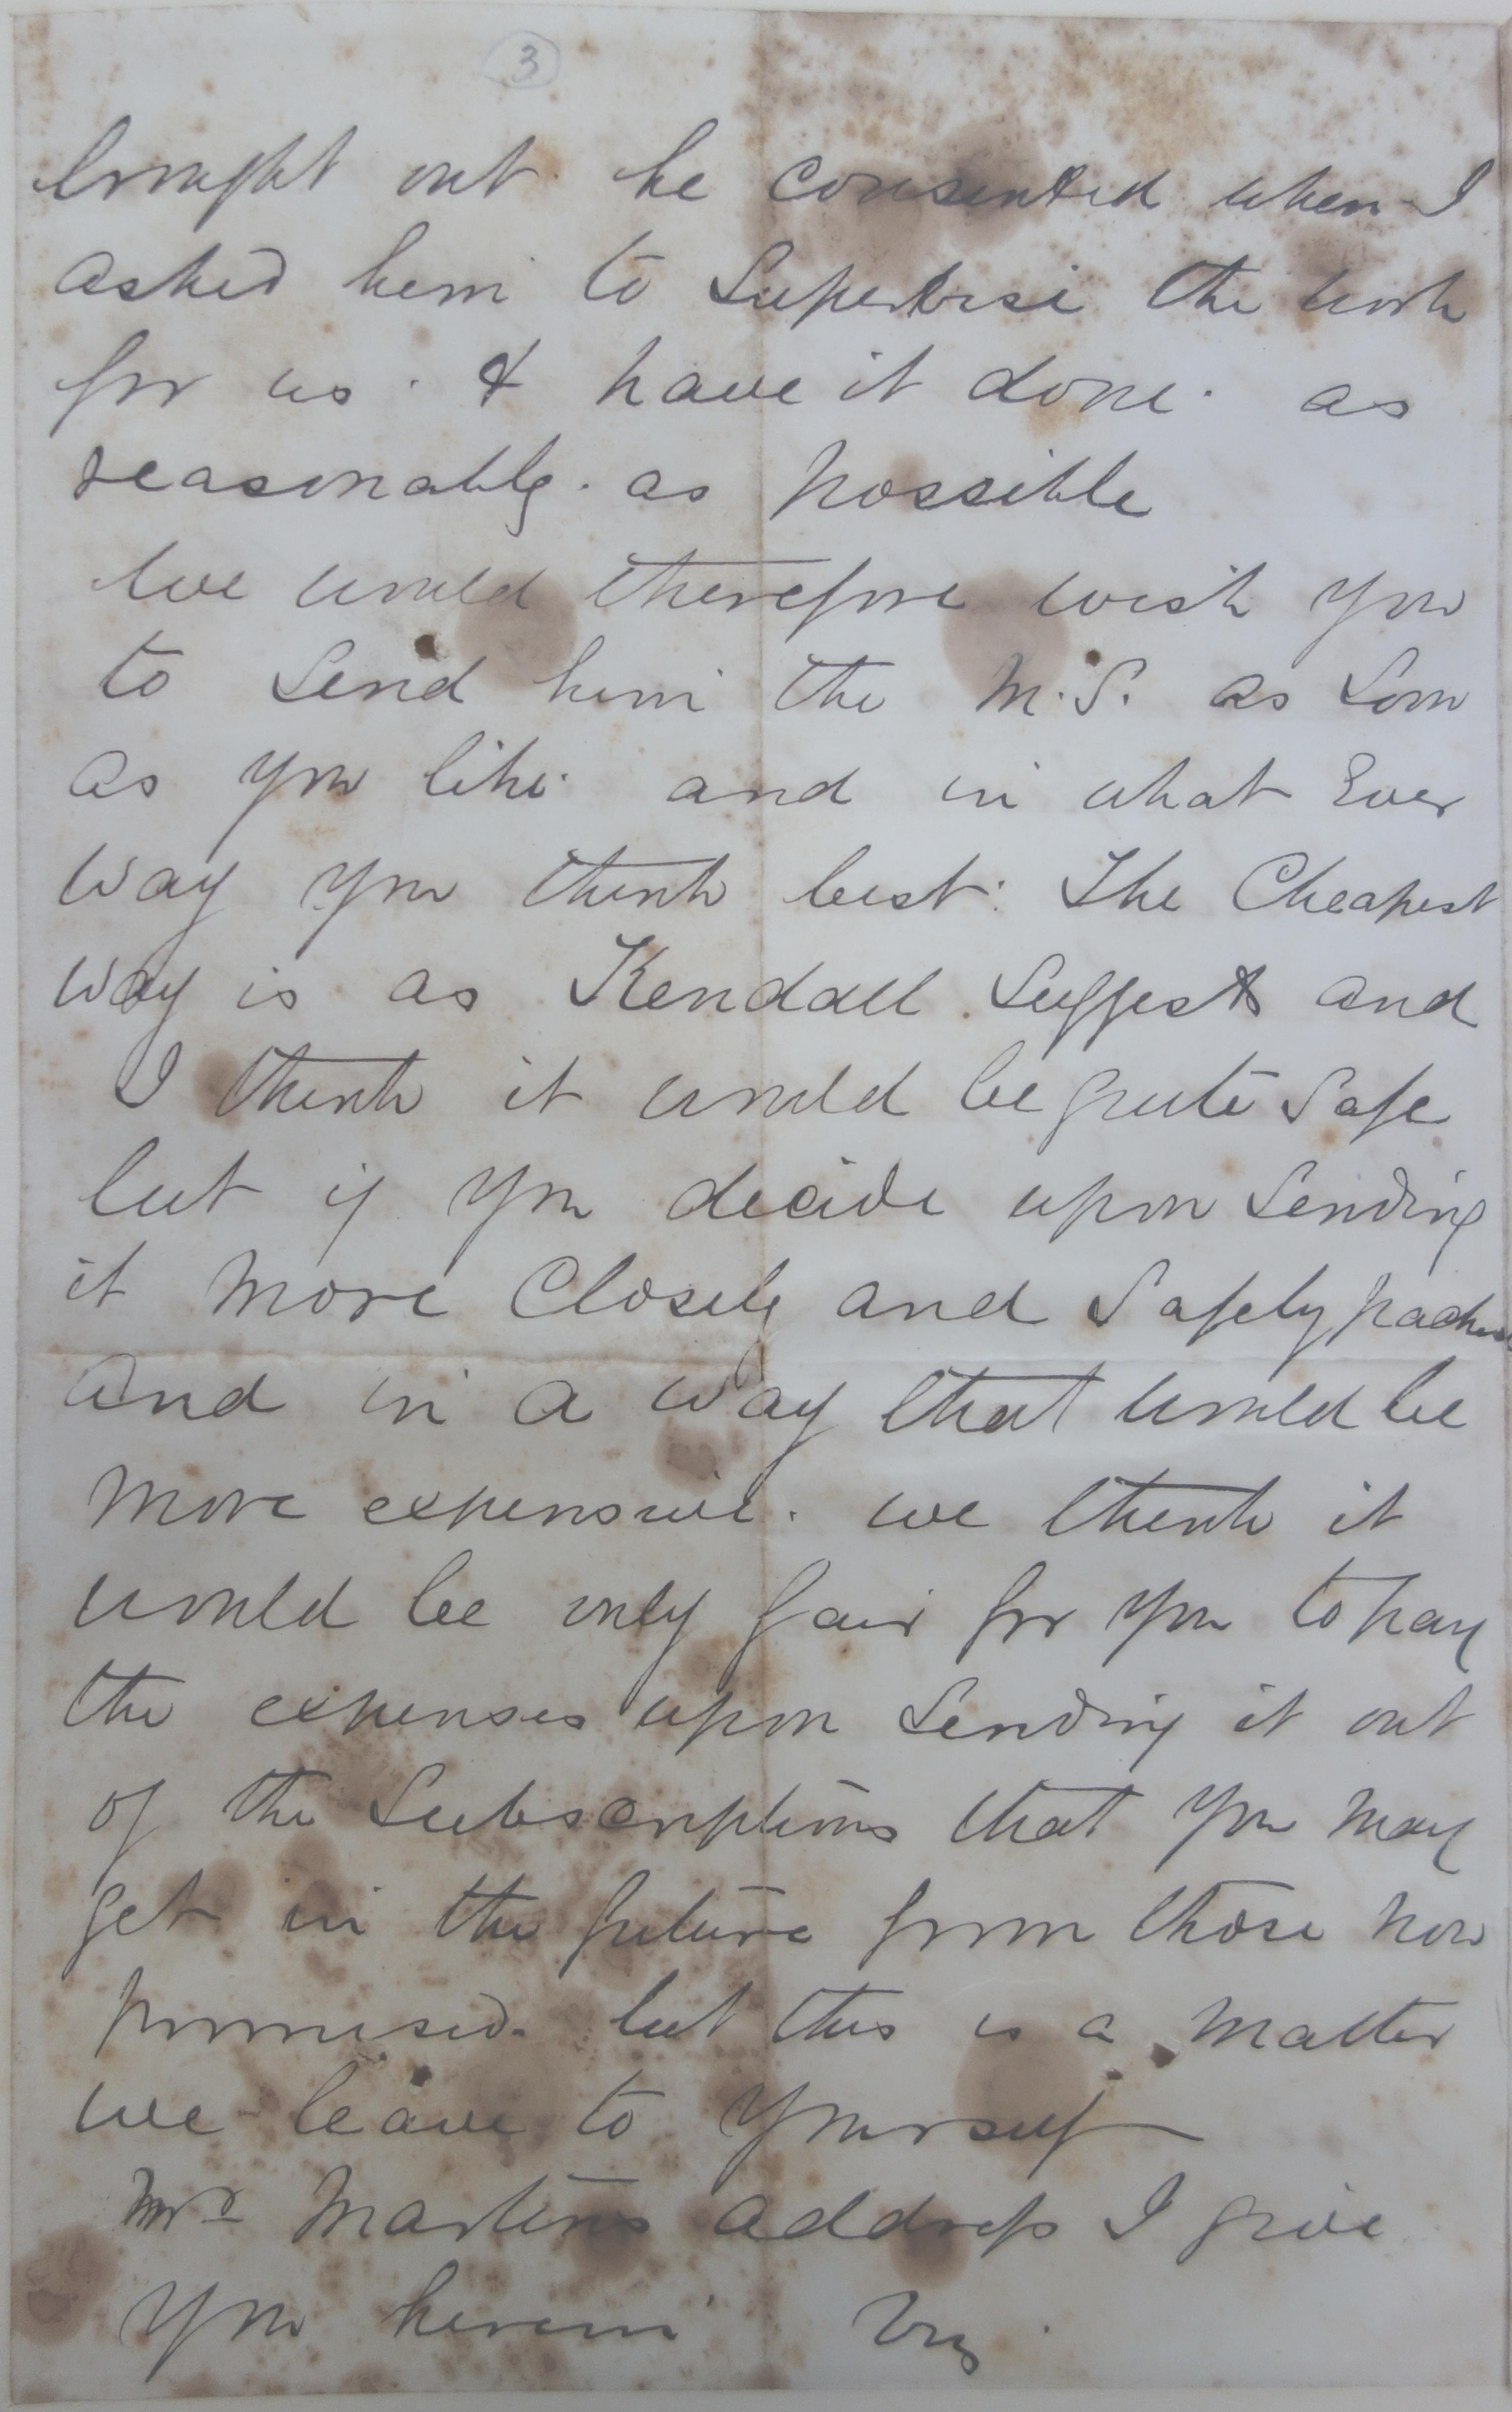 3
brought out he consented when I
asked him to Supervise the work
for us. & have it done. as
reasonably. as possible
We would therefore wish you
to Send him the M.S. as Soon
as you like. and in what Ever
way you think best. The Cheapest
way is as Kendall Suggests and
I think it would be quite Safe
but if you decide upon Sending
it more Closely and Safely packed
and in a way that would be
more expensive. we think it
would be only fair for you to pay
the expenses upon Sending it out
of the Subscriptions that you may
get in the future from those now
promised. but this is a matter
we leave to yourself
Mrs Martins address I give
you herein Viz.